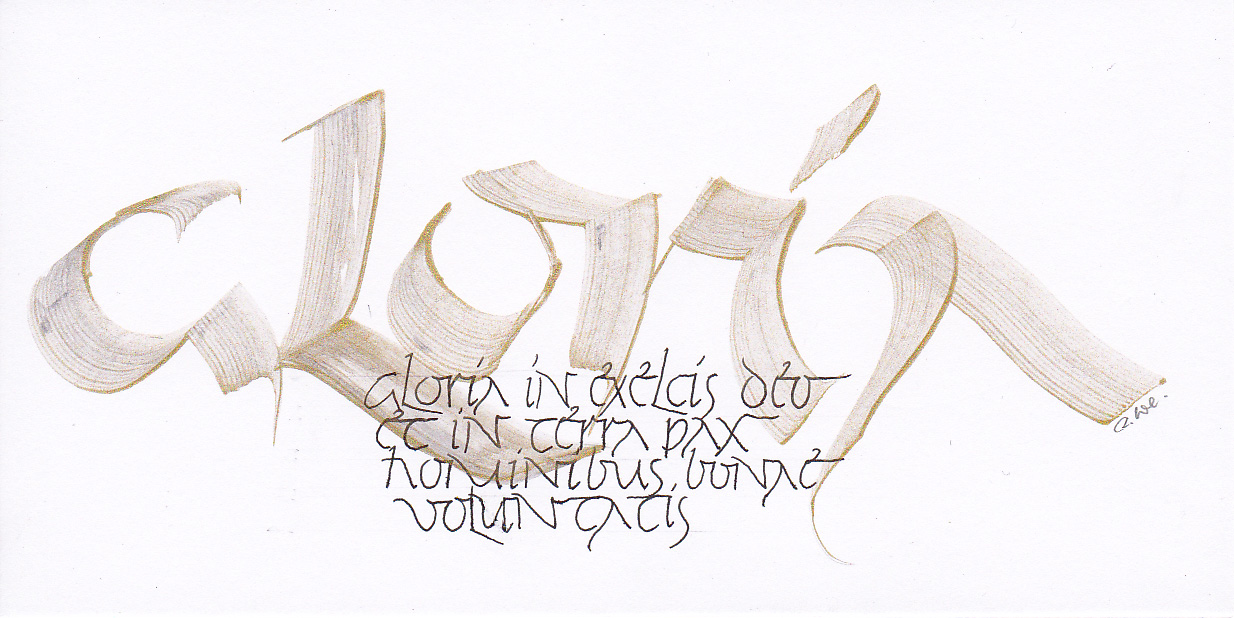 gloria
gloria in exelcis deo
et in terra pax
hominibus bonae
voluntatis
R. We.